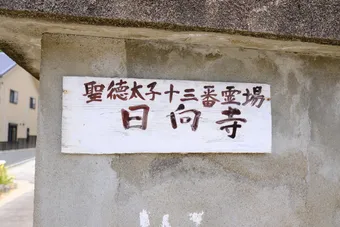 聖德太子十三番霊場
日向寺